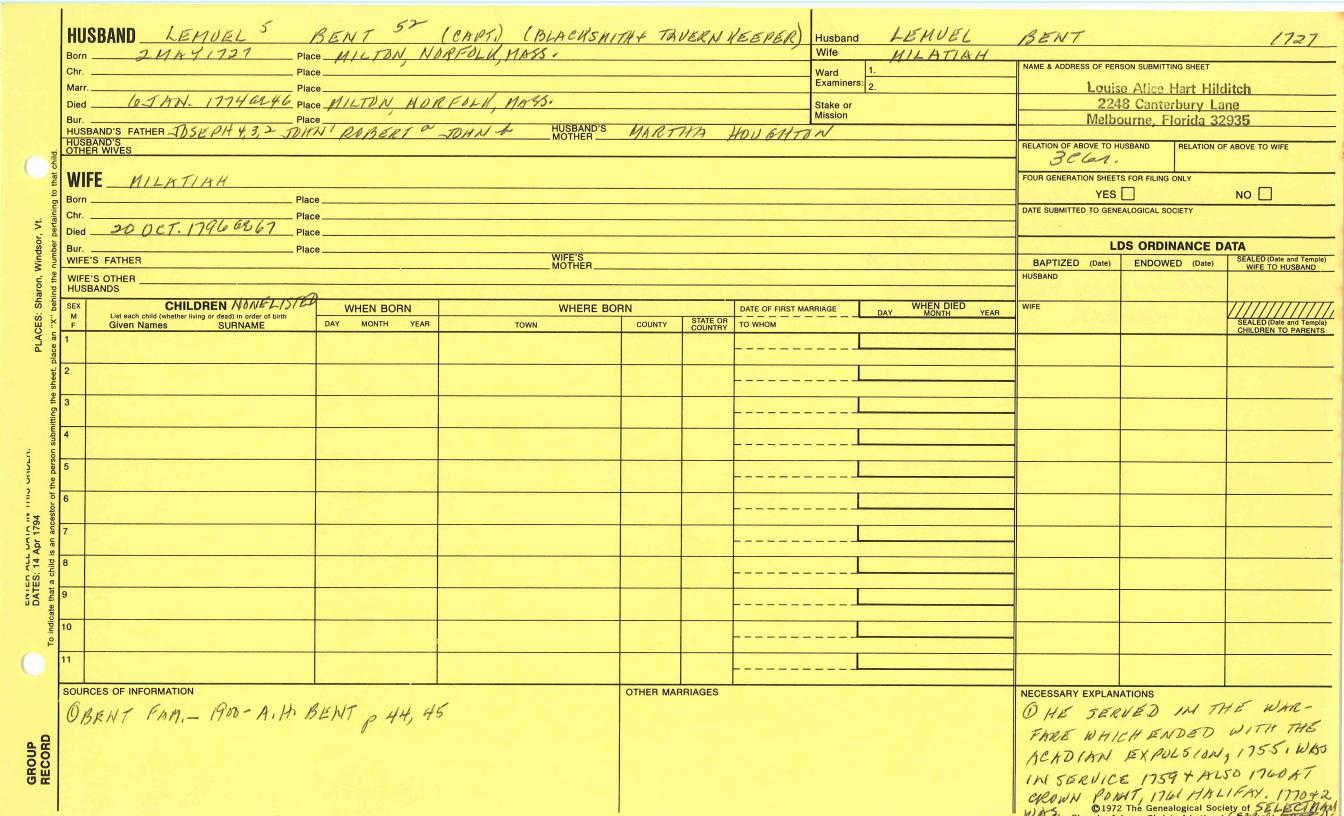 HUSBAND LEMUEL 5 BENT 52 (CAPT.) (BLACKSMITH & TAVERN KEEPER)
Born 2 MAY 1727 Place MILTON, NORFOLK, MASS.
Chr. Place
Marr. Place
Died 6 JAN. 1774 AE 46 Place MILTON, NORFOLK, MASS.
Bur. Place
HUSBAND'S FATHER JOSEPH 4,3,2 JOHN 1 ROBERT a JOHN b HUSBAND'S MOTHER MARTHA HOUGHTON
HUSBAND'S OTHER WIVES
WIFE MILATIAH
Born Place
Chr. Place
Died 20 OCT. 1796 AE 67 Place
Bur. Place
WIFE'S FATHER WIFE'S MOTHER
WIFE'S OTHER HUSBANDS
Husband LEMUEL BENT 1727
Wife MILATIAH
Ward Examiners: 1.
2.
Stake or Mission
NAME & ADDRESS OF PERSON SUBMITTING SHEET
Louise Alice Hart Hilditch
2248 Canterbury Lane
Melbourne, Florida 32935
RELATION OF ABOVE TO HUSBAND RELATION OF ABOVE TO WIFE
FOUR GENERATION SHEETS FOR FILING ONLY
YES NO
DATE SUBMITTED TO GENEALOGICAL SOCIETY
LDS ORDINANCE DATA
BAPTIZED (Date) ENDOWED (Date) SEALED (Date and Temple) WIFE TO HUSBAND
HUSBAND
WIFE
SEALED (Date and Temple) CHILDREN TO PARENTS
SEX M F
CHILDREN NONE LISTED
List each child (whether living or dead) in order of birth
Given Names SURNAME
WHEN BORN
DAY MONTH YEAR
WHERE BORN
TOWN COUNTY STATE OR COUNTRY
DATE OF FIRST MARRIAGE
TO WHOM
WHEN DIED
DAY MONTH YEAR
1
2
3
4
5
6
7
8
9
10
11
SOURCES OF INFORMATION
① BENT FAM. - 1900 - A.H. BENT p 44, 45
OTHER MARRIAGES
NECESSARY EXPLANATIONS
① HE SERVED IN THE WAR-
FARE WHICH ENDED WITH THE
ACADIAN EXPULSION, 1755. WAS
IN SERVICE 1759 & ALSO 1760 AT
CROWN POINT, 1761 HALIFAX. 1770 & 2
WAS SELECTMAN
©1972 The Genealogical Society of
PLACES: Sharon, Windsor, Vt.
ENTER ALL DATA IN THIS ORDER:
DATES: 14 Apr 1794
To indicate that a child is an ancestor of the person submitting the sheet, place an "X" behind the number pertaining to that child.
GROUP RECORD